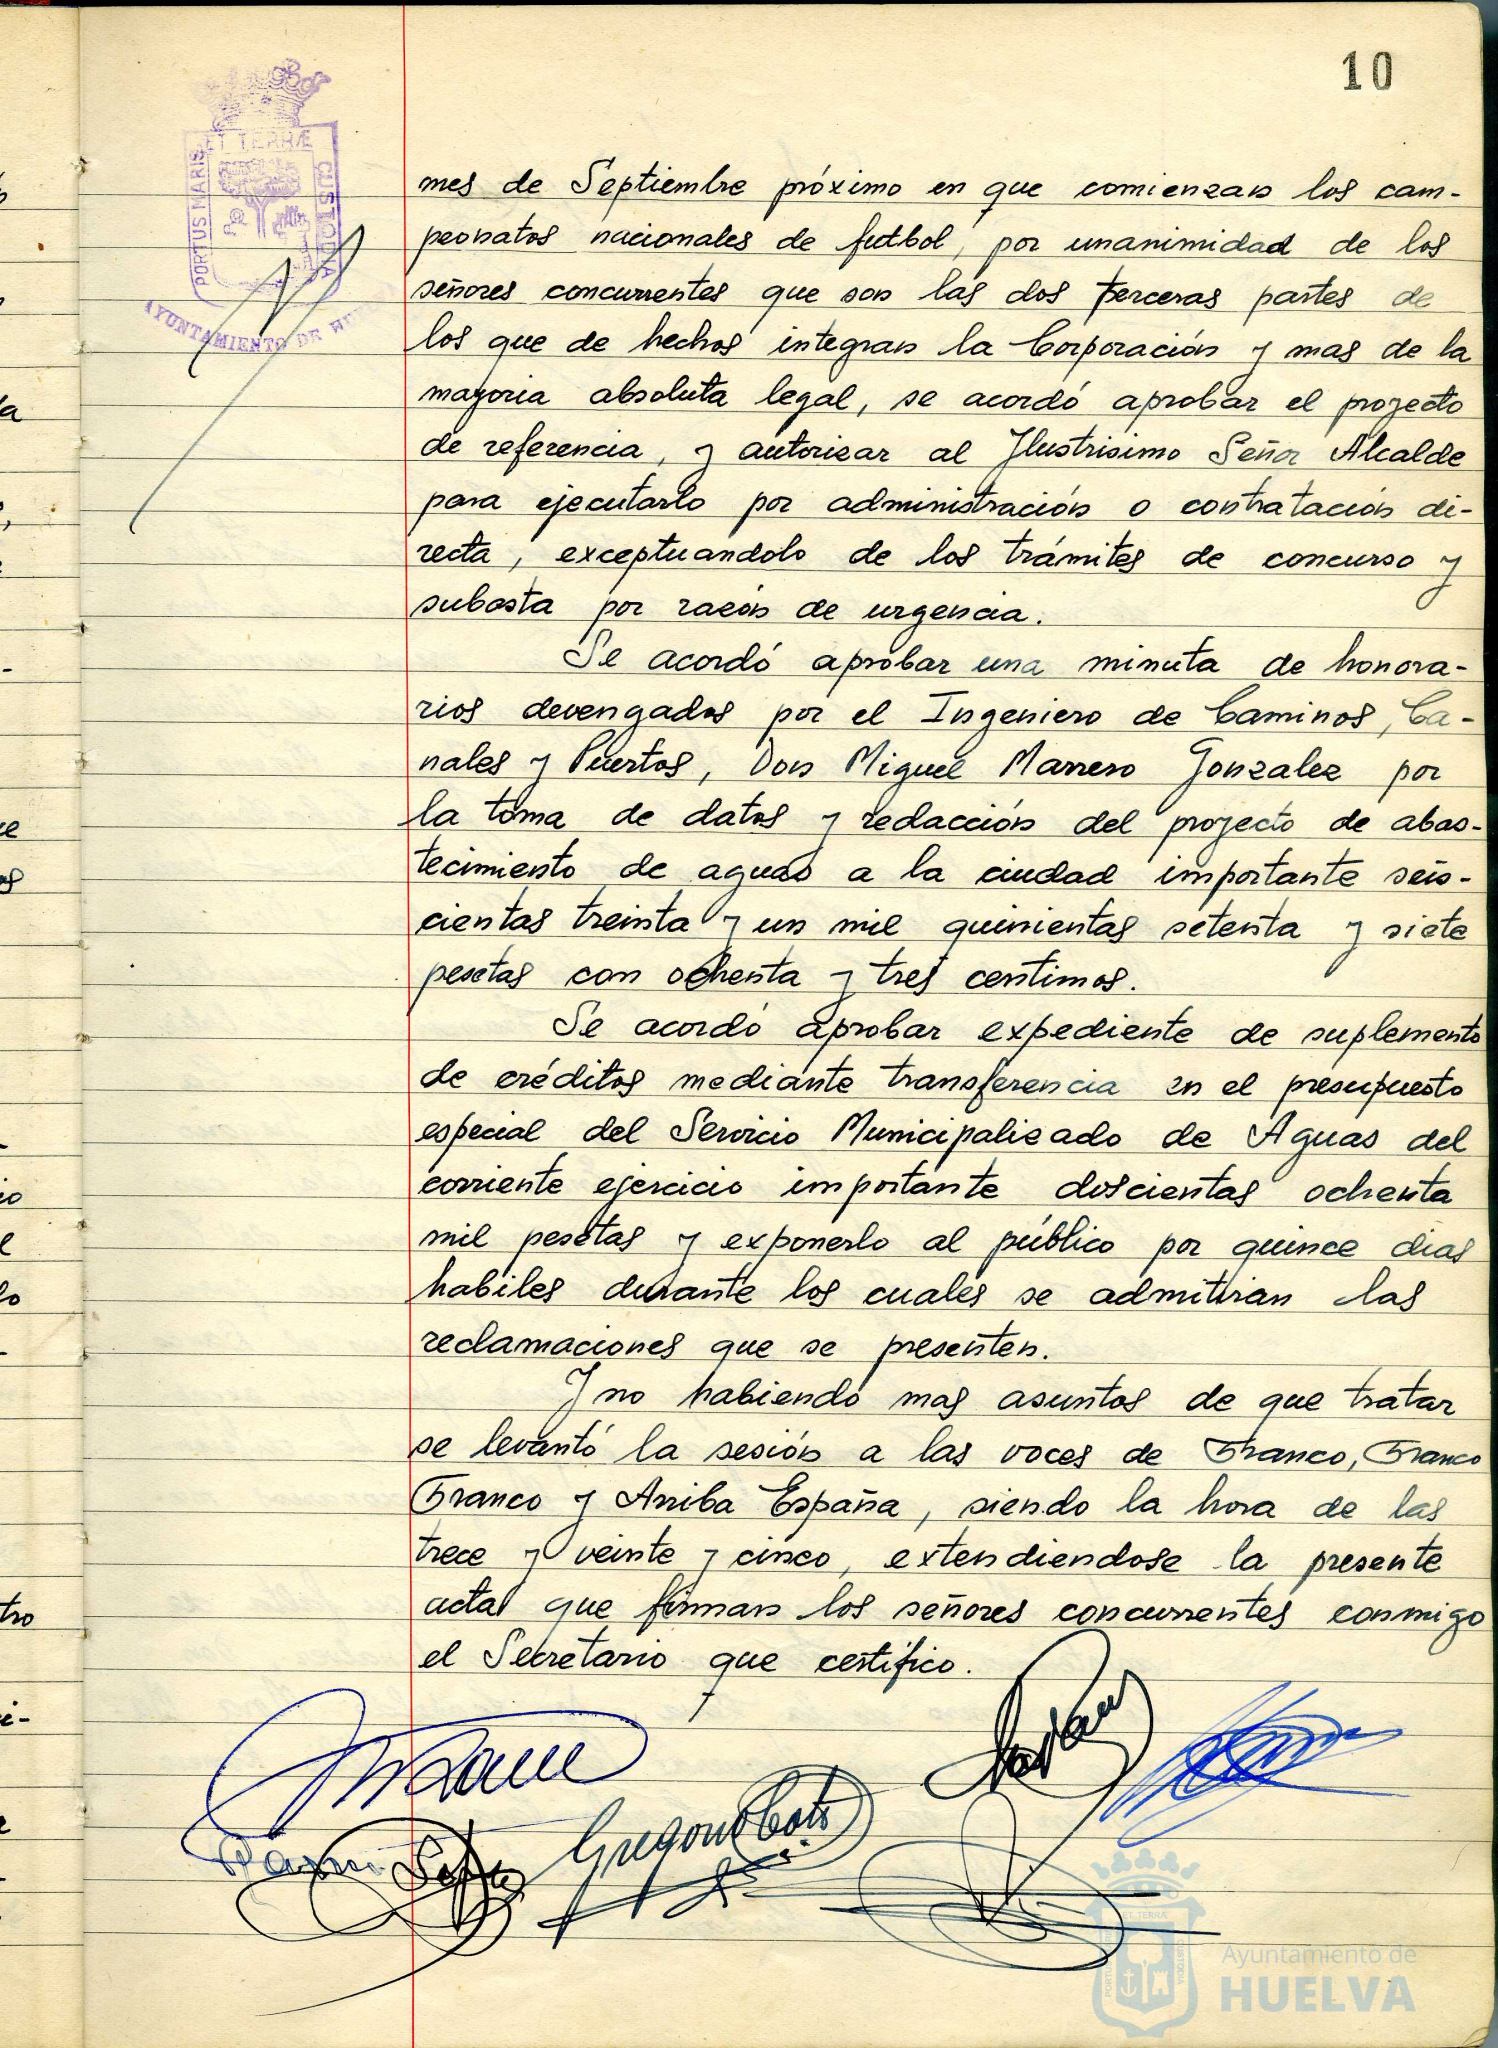 10
PORTUS MARIS ET TERRÆ CUSTODIA
AYUNTAMIENTO DE
mes de Septiembre próximo en que comienzan los cam-
peonatos nacionales de futbol, por unanimidad de los
señores concurrentes que son las dos terceras partes de
los que de hechos integran la Corporación y mas de la
mayoria absoluta legal, se acordó aprobar el proyecto
de referencia, y autorizar al Ilustrisimo Señor Alcalde
para ejecutarlo por administración o contratación di-
recta, exceptuandolo de los trámites de concurso y
subasta por razón de urgencia.
Se acordó aprobar una minuta de honora-
rios devengados por el Ingeniero de Caminos, Ca-
nales y Puertos, Don Miguel Marrero Gonzalez por
la toma de datos y redacción del proyecto de abas-
tecimiento de aguas a la ciudad importante seis-
cientas treinta y un mil quinientas setenta y siete
pesetas con ochenta y tres centimos.
Se acordó aprobar expediente de suplemento
de créditos mediante transferencia en el presupuesto
especial del Servicio Municipalizado de Aguas del
corriente ejercicio importante doscientas ochenta
mil pesetas y exponerlo al público por quince dias
habiles durante los cuales se admitiran las
reclamaciones que se presenten.
Y no habiendo mas asuntos de que tratar
se levantó la sesión a las voces de Franco, Franco
Franco y Arriba España, siendo la hora de las
trece y veinte y cinco, extendiendose la presente
acta que firman los señores concurrentes conmigo
el Secretario que certifico.
Ayuntamiento de
HUELVA